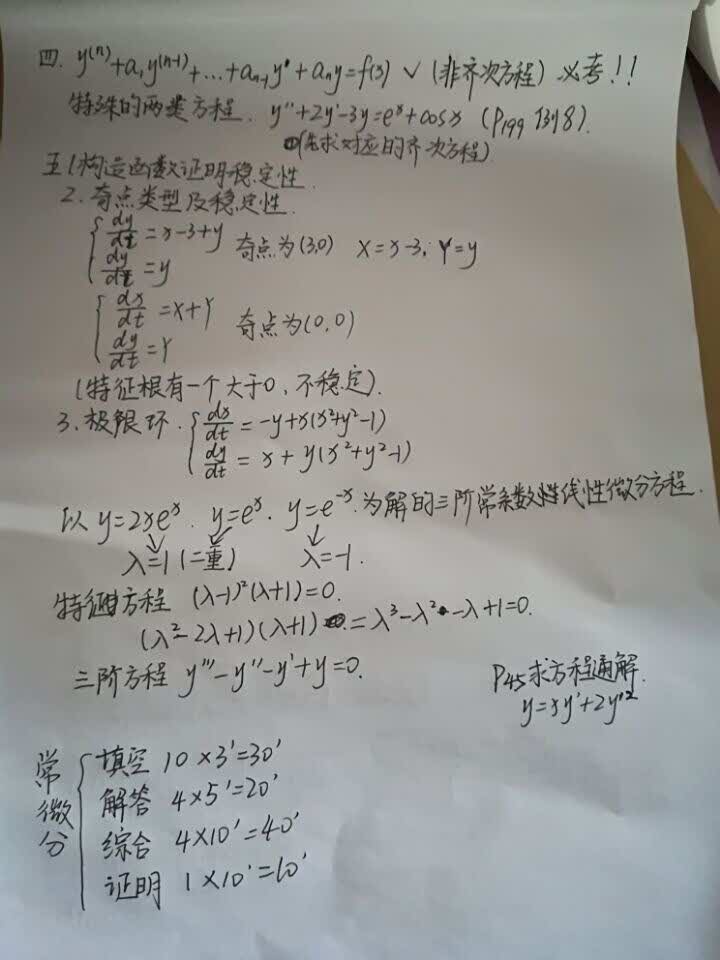 四. y⁽ⁿ⁾+a₁y⁽ⁿ⁻¹⁾+...+aₙ₋₁y'+aₙy=f(x) √ (非齐次方程) 必考!!
特殊的两类方程. y''+2y'-3y=eˣ+cosx (P₁₉₉ 例8).
(先求对应的齐次方程)
五 1.构造函数证明稳定性.
2. 奇点类型及稳定性.
{ dy/dt = x-3+y
奇点为(3,0) X=x-3, Y=y
dy/dt = y
{ dx/dt = X+Y
奇点为(0,0)
dy/dt = Y
(特征根有一个大于0, 不稳定).
3. 极限环. { dx/dt = -y+x(x²+y²-1)
dy/dt = x+y(x²+y²-1)
以 y=2xeˣ. y=eˣ. y=e⁻ˣ 为解的三阶常系数性线性微分方程.
λ=1(二重) λ=-1.
特征方程 (λ-1)²(λ+1)=0.
(λ²-2λ+1)(λ+1) = λ³-λ²-λ+1=0.
三阶方程 y'''-y''-y'+y=0.
P45求方程通解.
y=xy'+2y'²
常微分 { 填空 10×3'=30'
解答 4×5'=20'
综合 4×10'=40'
证明 1×10'=10'